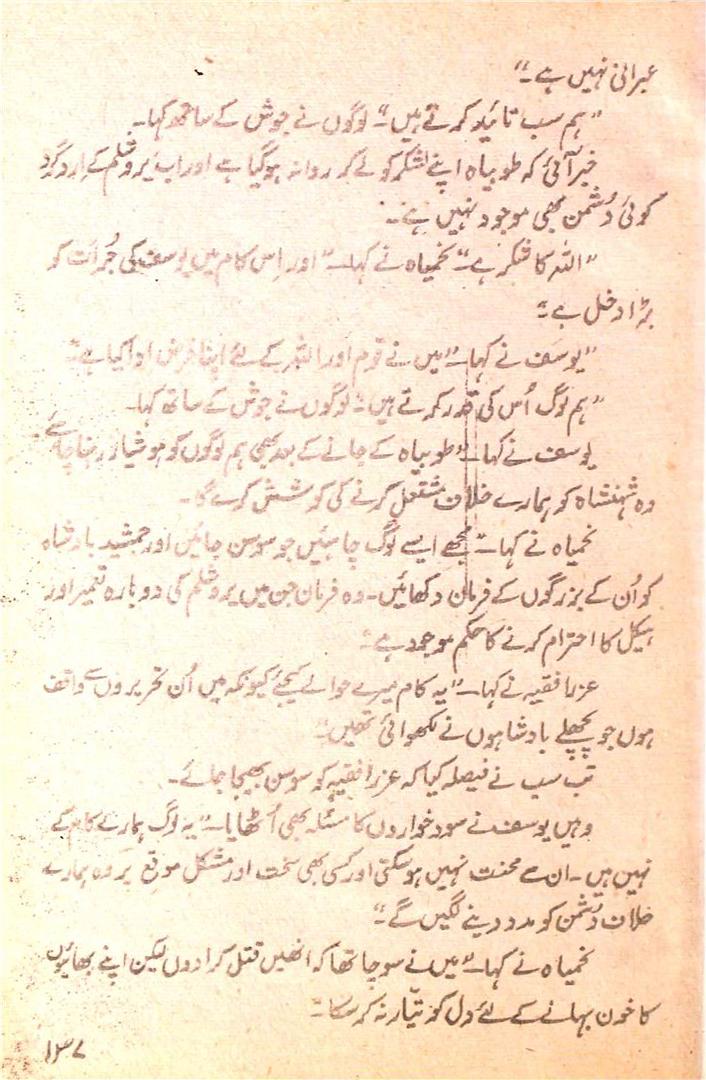 عبرانی نہیں ہے۔"
"ہم سب تائید کرتے ہیں۔" لوگوں نے جوش کے ساتھ کہا۔
خبر آئی کہ طوبیاہ اپنے لشکر کو لے کر روانہ ہوگیا ہے اور اب یروشلم کے اِرد گرد
کوئی دُشمن بھی موجود نہیں ہے۔
"اللہ کا شکر ہے۔" نحمیاہ نے کہا۔ "اور اِس کام میں یوسف کی جُرأت کو
بڑا دخل ہے۔"
"یوسف نے کہا۔ "میں نے قوم اور اللہ کے لئے اپنا فرض ادا کیا ہے۔"
"ہم لوگ اُس کی قدر کرتے ہیں۔" لوگوں نے جوش کے ساتھ کہا۔
یوسف نے کہا۔ "طوبیاہ کے جانے کے بعد بھی ہم لوگوں کو ہوشیار رہنا چاہئے
وہ شہنشاہ کو ہمارے خلاف مشتعل کرنے کی کوشش کرے گا۔
نحمیاہ نے کہا۔ "مجھے ایسے لوگ چاہئیں جو سوسن جائیں اور جمشید بادشاہ
کو اُن کے بزرگوں کے فرمان دکھائیں۔ وہ فرمان جن میں یروشلم کی دوبارہ تعمیر اور
ہیکل کا احترام کرنے کا حکم موجود ہے۔"
عزرا فقیہ نے کہا۔ "یہ کام میرے حوالے کیجئے کیونکہ میں اُن تحریروں سے واقف
ہوں جو پچھلے بادشاہوں نے لکھوائی تھیں۔"
تب سب نے فیصلہ کیا کہ عزرا فقیہ کو سوسن بھیجا جائے۔
وہیں یوسف نے سود خواروں کا مسئلہ بھی اُٹھایا۔ "یہ لوگ ہمارے کام کے
نہیں ہیں۔ ان سے محنت نہیں ہوسکتی اور کسی بھی سخت اور مشکل موقع پر وہ ہمارے
خلاف دُشمن کو مدد دینے لگیں گے۔"
نحمیاہ نے کہا۔ "میں نے سوچا تھا کہ انھیں قتل کرادوں لیکن اپنے بھائیوں
کا خون بہانے کے لئے دل کو تیّار نہ کرسکا۔"
۱۳۷